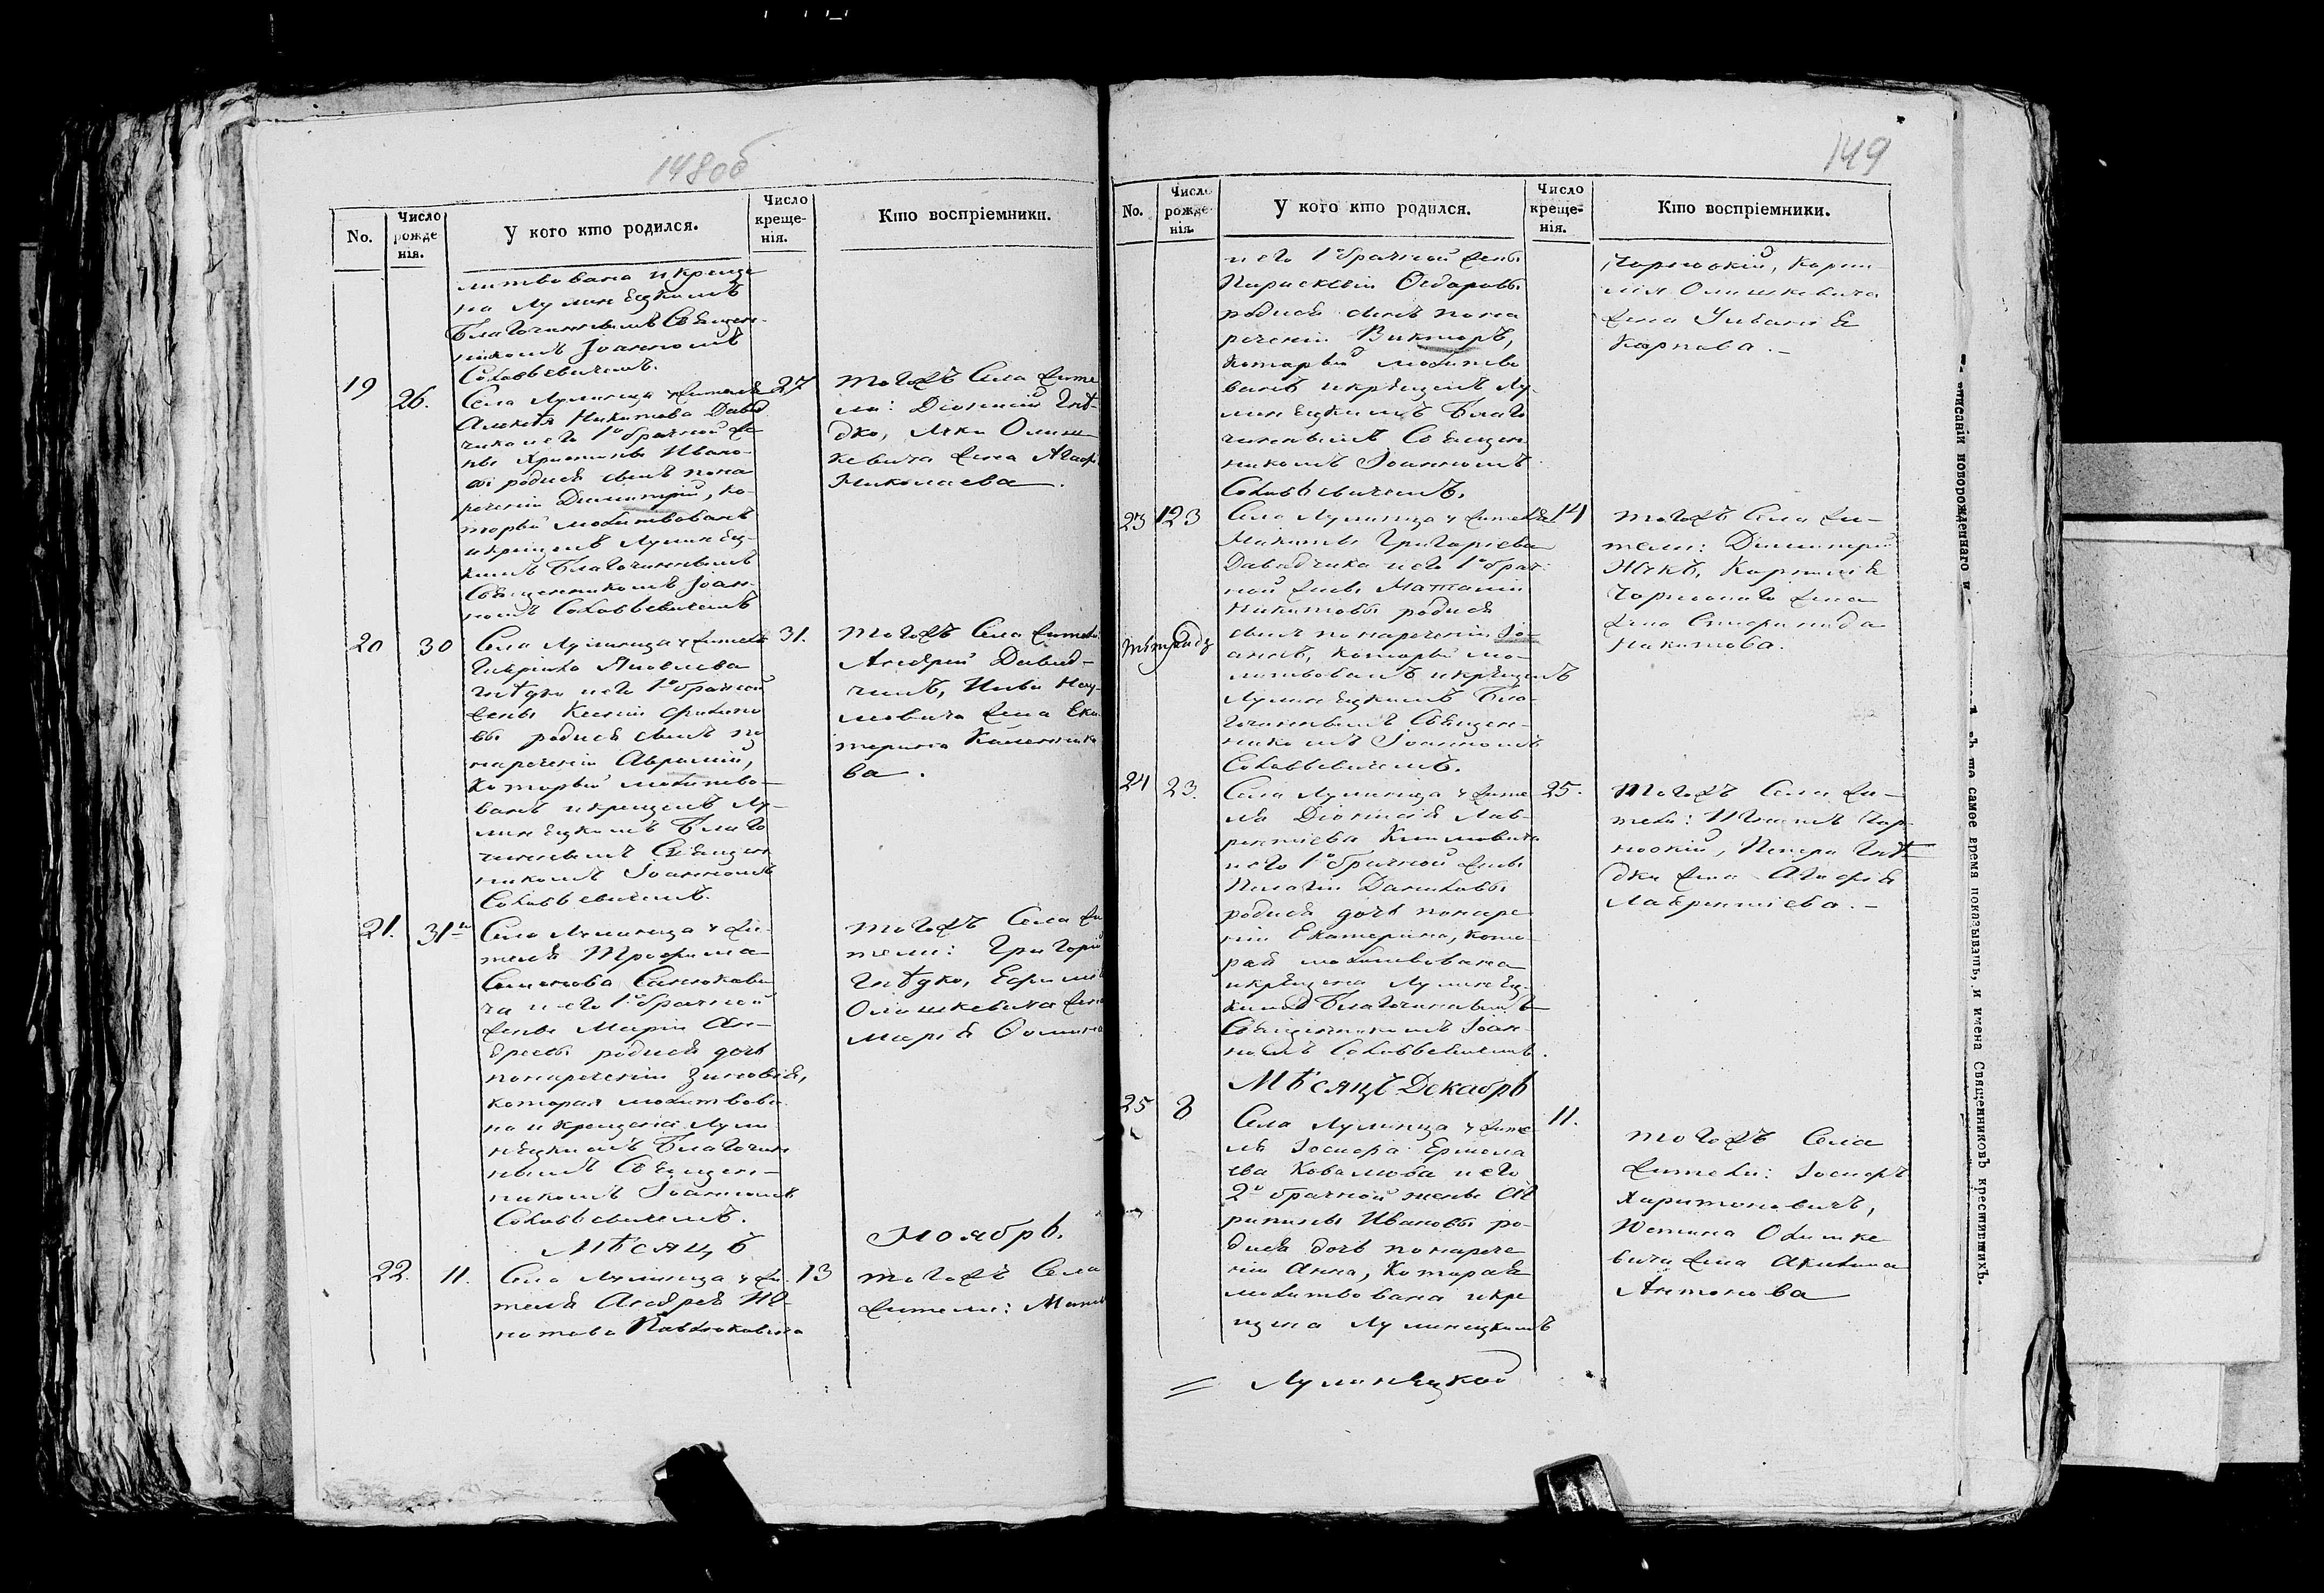 148об
No.
Число рожденія.
У кого кто родился.
Число крещенія.
Кто воспріемники.
литвована и креще
на Луминѣцкимъ
Благочиннымъ Священ-
никомъ Іоанномъ
Соловьевичемъ.
19
26.
Села Луминца жителя
Алексѣя Никитова Давид
чика и его 1о брачной же
ны Христины Ивано-
вой родися сынъ пона
реченіи Димитрій, ко-
торый молитвованъ
и крещенъ Луминѣц-
кимъ Благочиннымъ
Священникомъ Іоан-
номъ Соловьевичемъ
27
тогожъ Села жите
ли: Діонисій Гнѣ-
дко, Олиш-
кевича жена Агафі
Николаева.
20
30
Села Луминца жителя
Гаврiила Яковлева
Гнѣдко и его 1о брачной
жены Ксеніи Филипо
вы родися сынъ по
нареченіи Авраамій,
который молитво-
ванъ и крещенъ Лу-
минѣцкимъ Благо
чиннымъ Священ
никомъ Іоанномъ
Соловьевичемъ.
31.
тогожъ Села жители
Андрей Давид-
чикъ,
жена Ека
терина
ва.
21.
31го
Села Луминца жи-
теля Трофима
Семенова Санюкови
ча и его 1о брачной
жены Маріи Ан-
дреевы родися дочь
понареченіи Зиновія,
которая молитвова
на и крещена Луми
нѣцкимъ Благочин
нымъ Священ-
никомъ Іоанномъ
Соловьевичемъ.
тогожъ Села жи
тели: Григорій
Гнѣдко, Ефима
Олишкевича жена
Марія Фомина
Мѣсяцъ
Ноябрь.
22.
11.
Села Луминца жи-
теля Андрея Иг-
натова Павлюковича
13
тогожъ Села
жители:
149
No.
Число рожденія.
У кого кто родился.
Число крещенія.
Кто воспріемники.
и его 1о брачной жены
Параскевіи Федоровы
родися сынъ пона
реченіи Викторъ,
который молитво
ванъ и крещенъ Лу-
минѣцкимъ Благо
чиннымъ Священ
никомъ Іоанномъ
Соловьевичемъ.
Чорноокій, Корни-
лія Олишкевича
жена Уліанія
Карпова.
23
123
Села Луминца жителя
Никиты Григоріева
Давидчика и его 1о брач-
ной жены Наталіи
Никитовы родися
сынъ понареченіи Іо-
аннъ, который мо-
литвованъ и крещенъ
Луминѣцкимъ Бла-
гочиннымъ Священ-
никомъ Іоанномъ
Соловьевичемъ.
14
тогожъ Села жи-
тели: Димитрій
Жукъ, Корнилія
Чорноокого жена
жена Степанида
Никитова.
24
23.
Села Луминца жите
ля Діонисія Лав-
рентіева Климовича
и его 1о брачной жены
Пелагіи Даниловы
родися дочь понаре
ніи Екатерина, кото-
рая молитвована
и крещена Луминѣц-
кимъ Благочиннымъ
Священникомъ Іоан-
номъ Соловьевичемъ.
25.
тогожъ Села жи-
тели: Игнатъ Чор-
ноокій, Петра Гнѣ-
дки жена Агафія
Лаврентіева.
Мѣсяцъ Декабрь
25
8
Села Луминца жите
ля Іосифа Ермола
ева Ковалюва и его
2о брачной жены Ак
рипины Ивановы ро-
дися дочь понарече
ніи Анна, которая
молитвована и кре
щена Луминецкимъ
11.
тогожъ Села
жители: Іосифъ
Харитоновичъ,
Устина Олишке-
вича жена Акилина
Антонова
Луминѣцкой